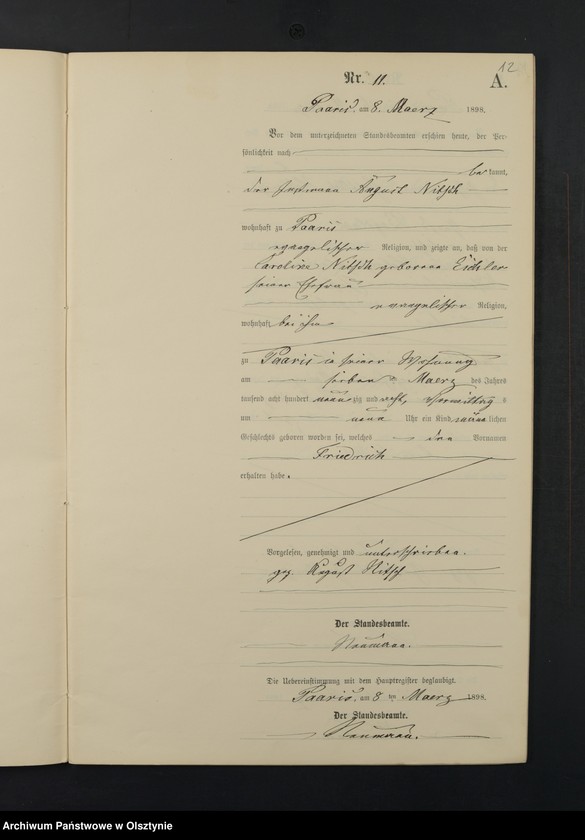 12
Nr. 11.
A.
Paaris, am 8. Maerz 1898.
Vor dem unterzeichneten Standesbeamten erschien heute, der Per-
sönlichkeit nach
bekannt,
der Instmann August Nitsch
wohnhaft zu Paaris
evangelischer Religion, und zeigte an, daß von der
Caroline Nitsch geborene Eichler
seiner Ehefrau
evangelischer Religion,
wohnhaft bei ihm
zu Paaris in seiner Wohnung
am sieben ten Maerz des Jahres
tausend acht hundert neunzig und acht, Vormittags
um neun Uhr ein Kind männlichen
Geschlechts geboren worden sei, welches den Vornamen
Friedrich
erhalten habe.
Vorgelesen, genehmigt und unterschrieben.
gez. August Nitsch
Der Standesbeamte.
Die Uebereinstimmung mit dem Hauptregister beglaubigt.
Paaris, am 8 ten Maerz 1898.
Der Standesbeamte.
Archiwum Państwowe w Olsztynie